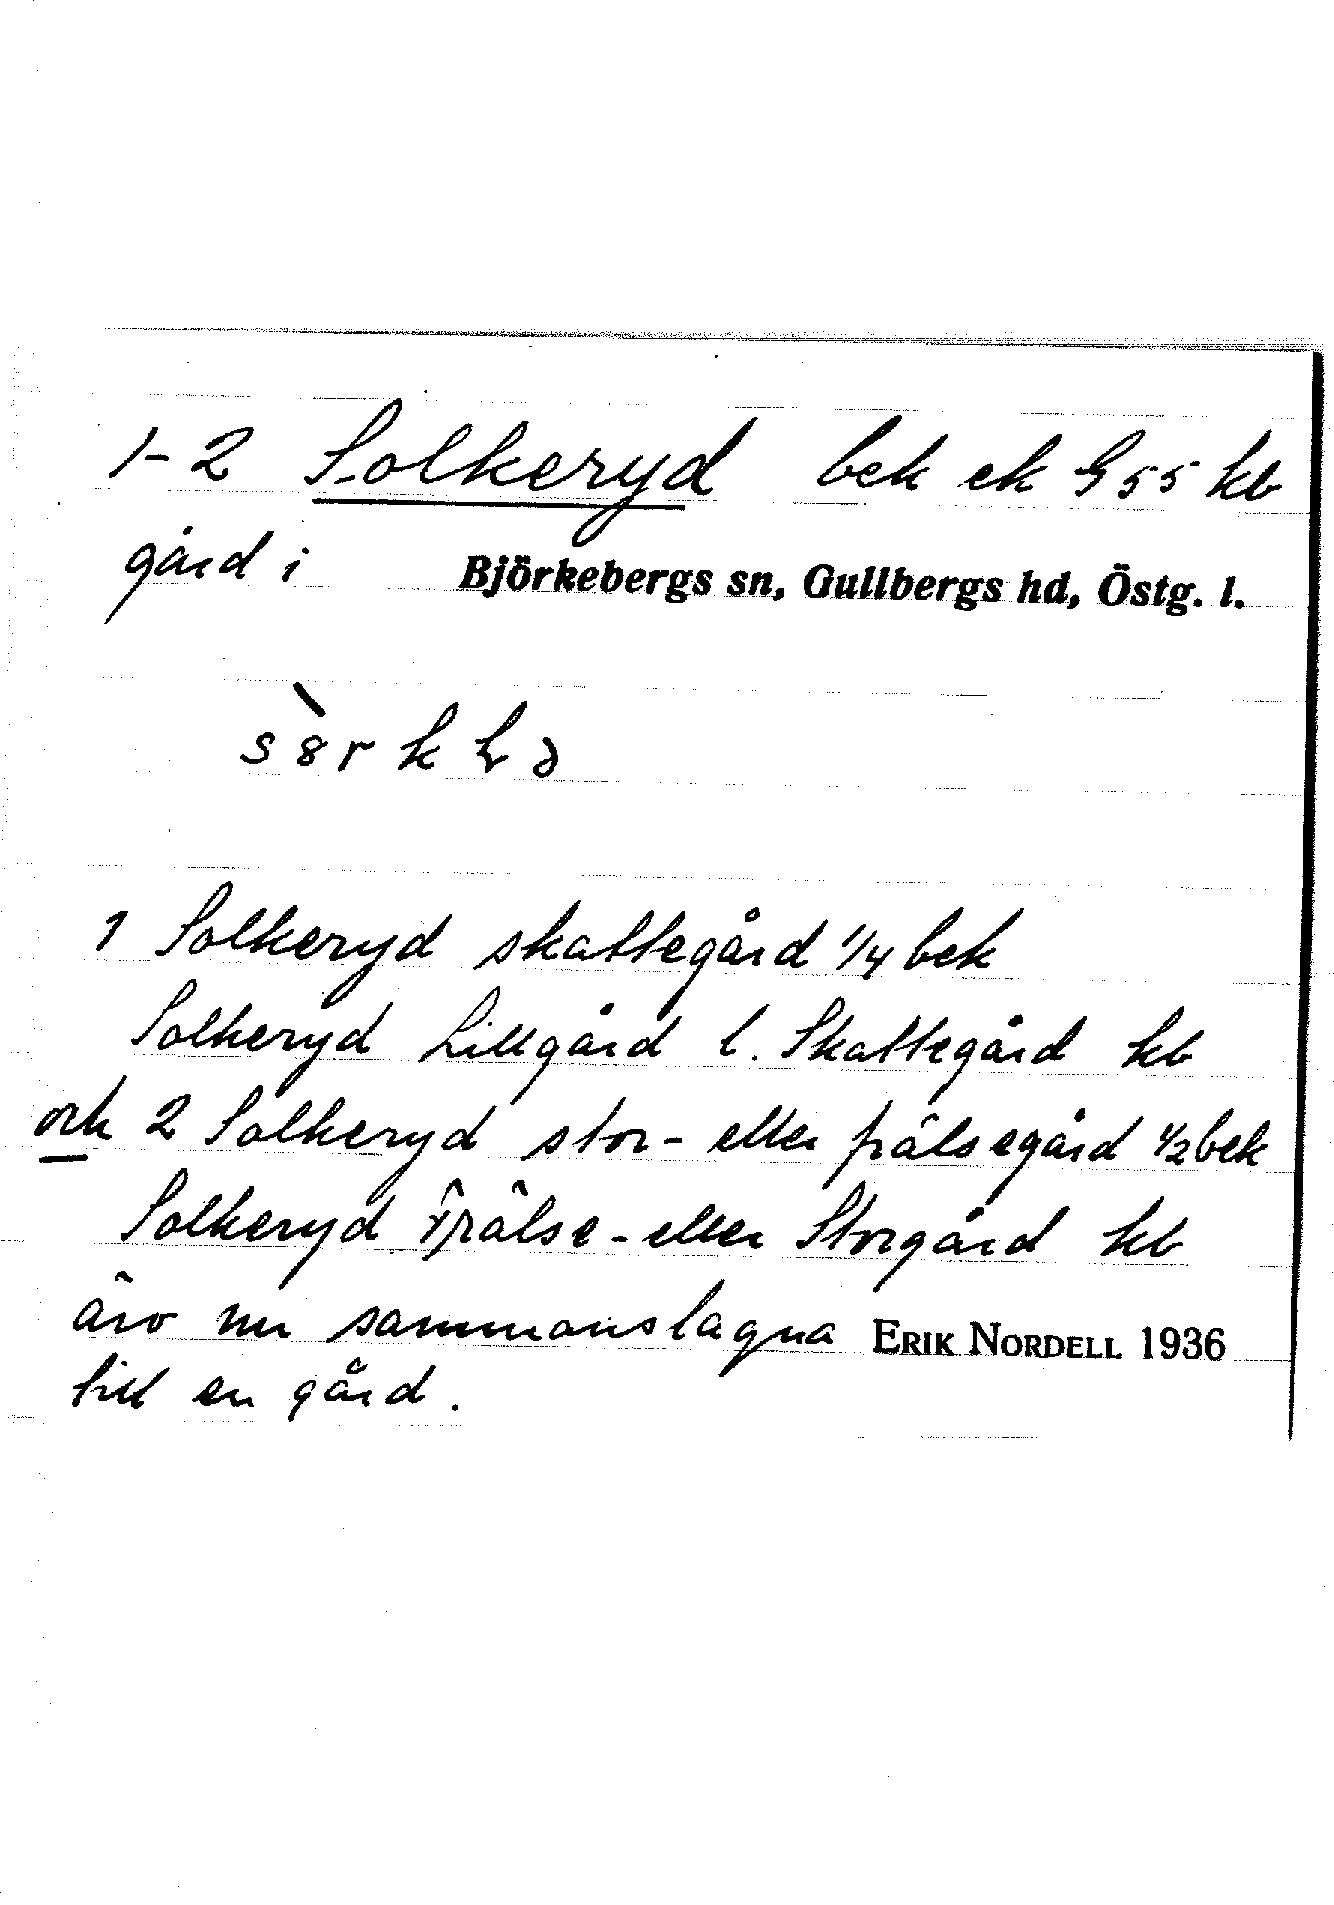 1-2 Solkeryd bek ek G 55 kb
gård i Björkebergs sn, Gullbergs hd, Östg. l.
1 Solkeryd skattegård 1/4 bek
Solkeryd Lillgård l. Skattegård kb
och 2 Solkeryd stor- eller frälsegård 1/2 bek
Solkeryd Frälse- eller Storgård kb
äro nu sammanslagna ERIK NORDELL 1936
till en gård.